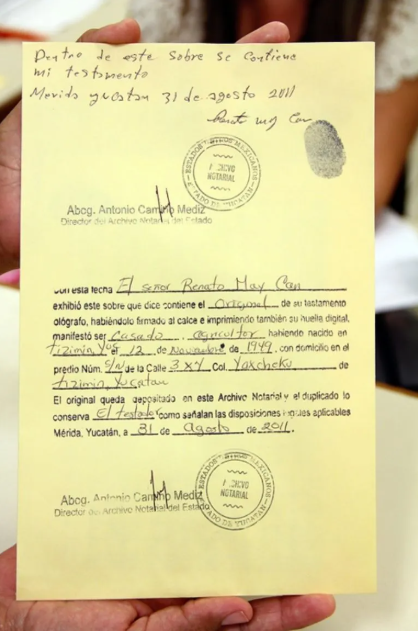 Dentro de este sobre se contiene
mi testamento
Merida yucatan 31 de agosto 2011
Renato may Can
ESTADOS UNIDOS MEXICANOS
ARCHIVO
NOTARIAL
ESTADO DE YUCATAN
Abog. Antonio Camino Mediz
Director del Archivo Notarial del Estado
Con esta fecha El señor Renato May Can
exhibió este sobre que dice contiene el Original de su testamento
ológrafo, habiéndolo firmado al calce e imprimiendo también su huella digital,
manifestó ser Casado, agricultor habiendo nacido en
tizimin, Yuc el 12 de Noviembre de 1949, con domicilio en el
predio Núm. S/N de la Calle 3 x 4 Col. Yaxcheku de
tizimin, Yucatan
El original queda depositado en este Archivo Notarial y el duplicado lo
conserva El testador como señalan las disposiciones legales aplicables
Mérida, Yucatán, a 31 de agosto de 2011.
ESTADOS UNIDOS MEXICANOS
ARCHIVO
NOTARIAL
ESTADO DE YUCATAN
Abog. Antonio Camino Mediz
Director del Archivo Notarial del Estado